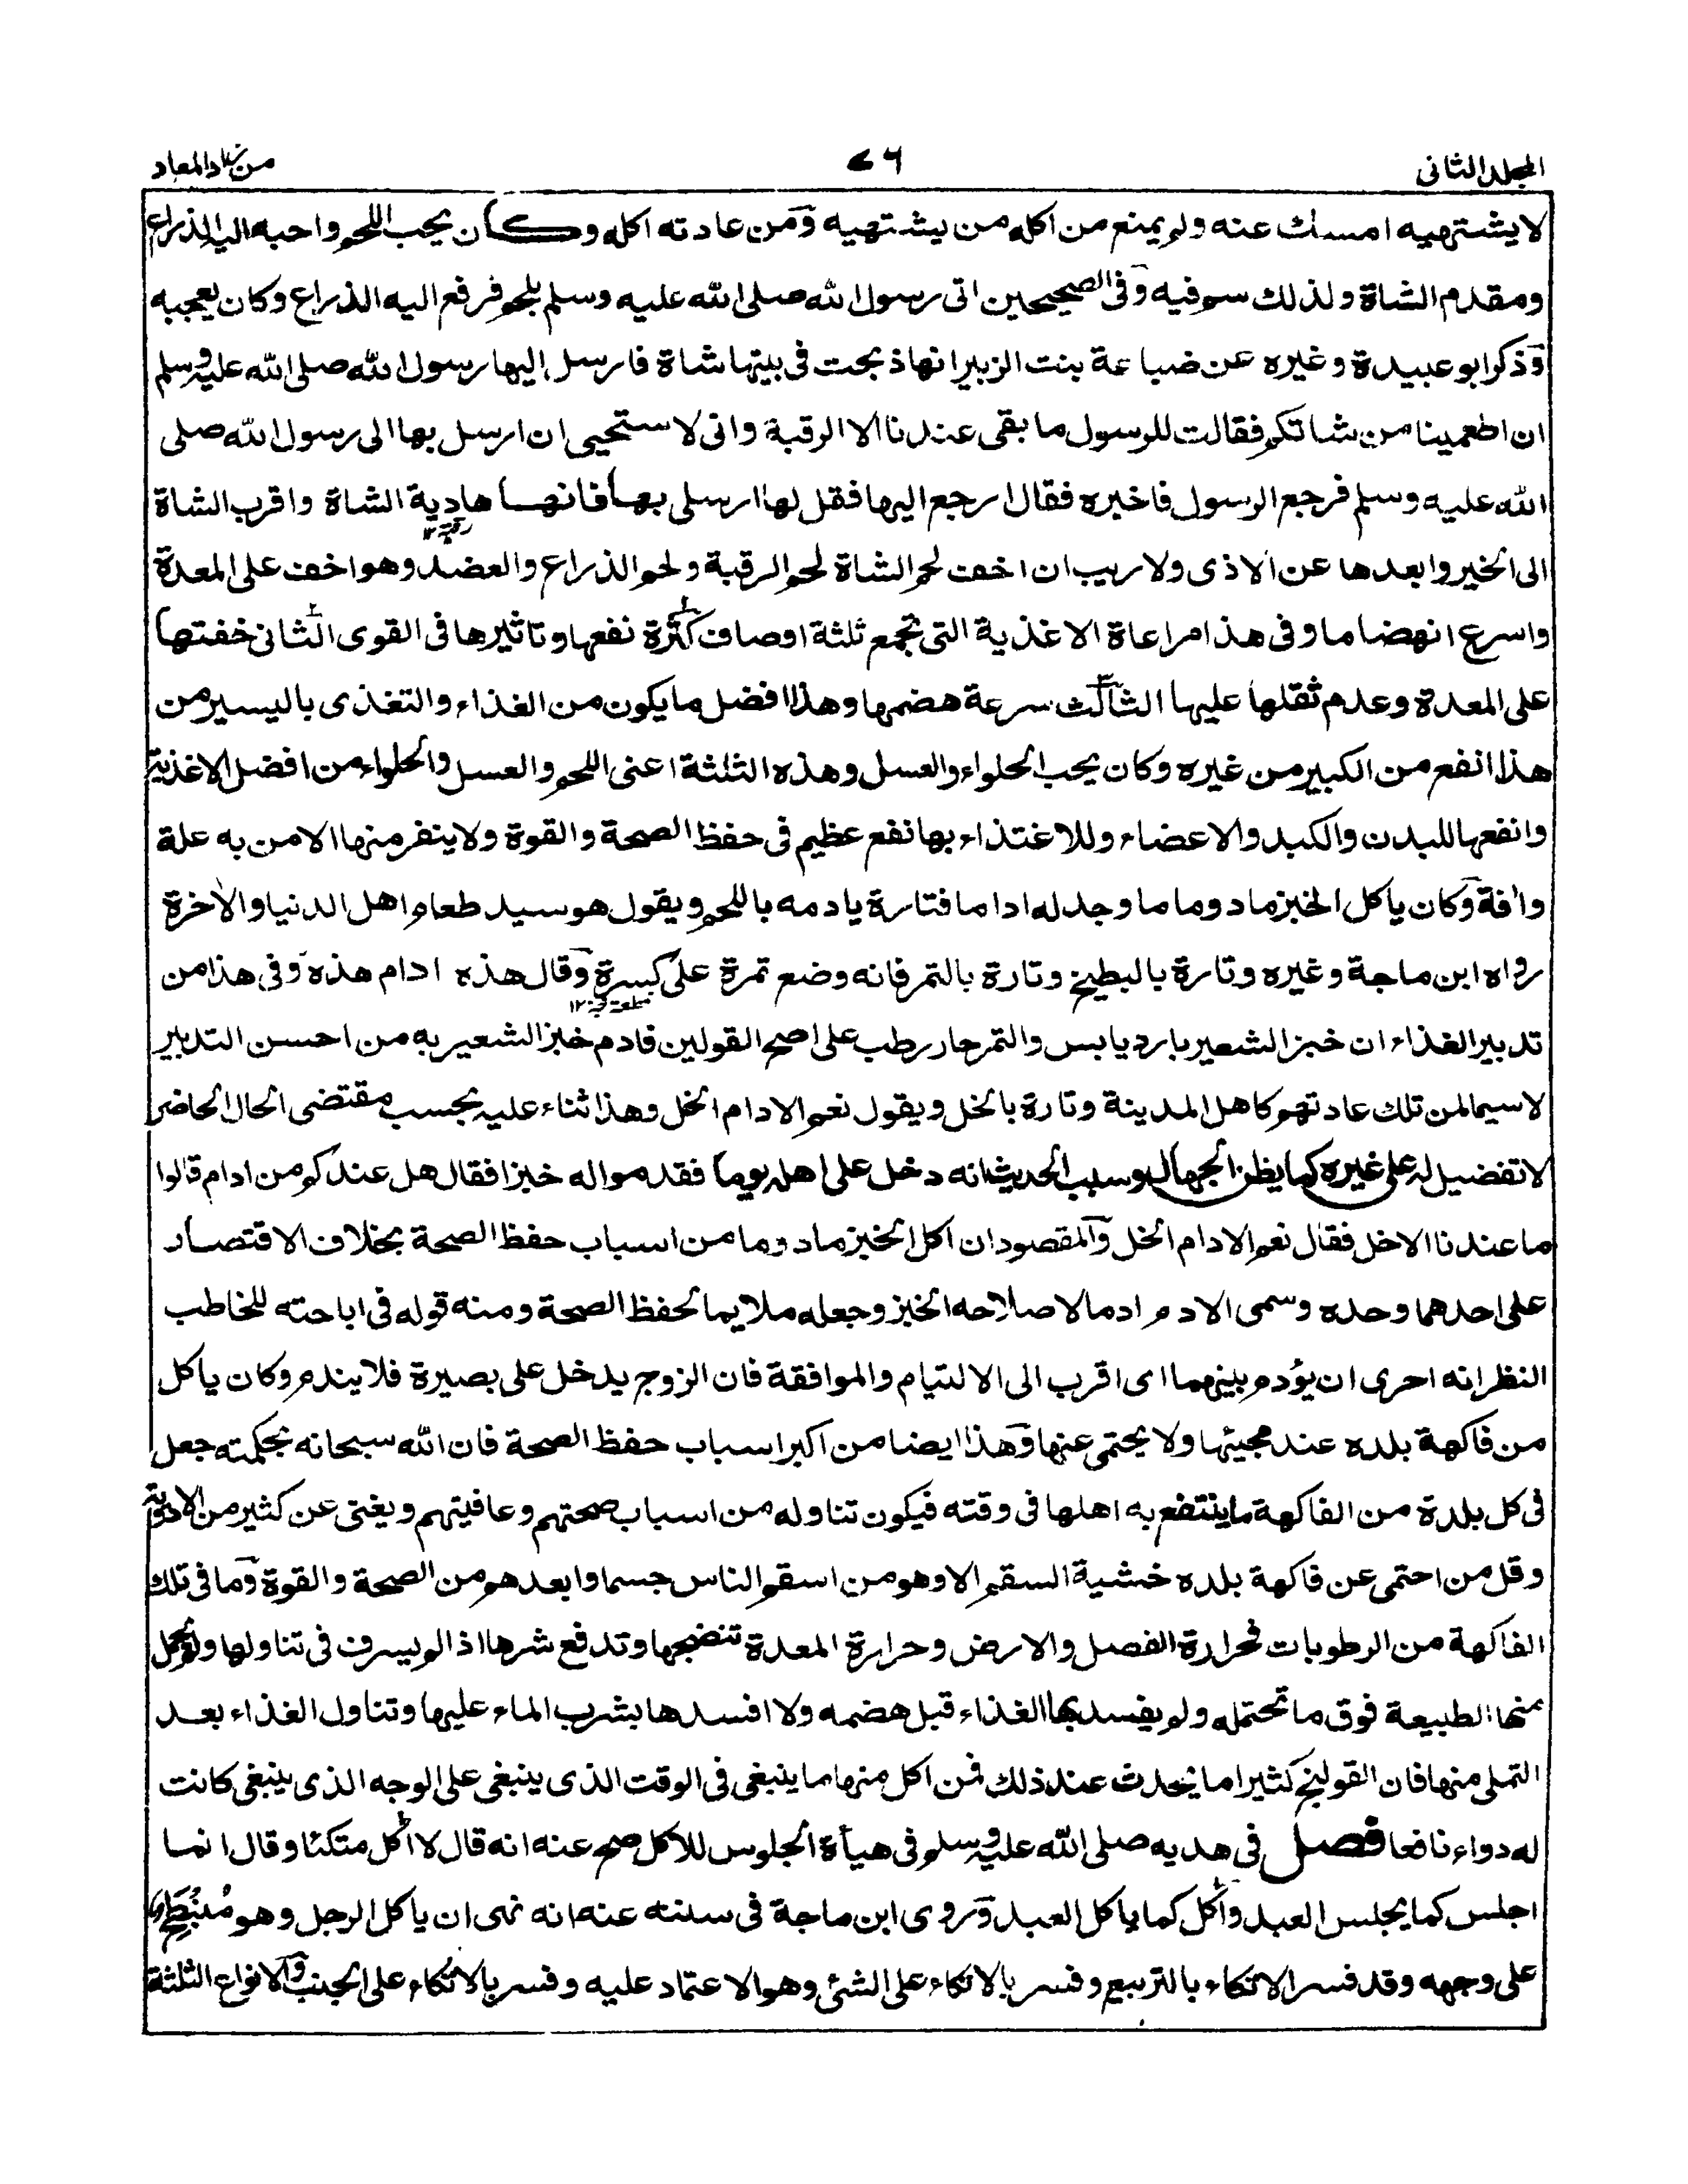 المجلد الثانى ٧٦ من زاد المعاد
لا يشتهيه امسك عنه ولم يمنع من اكله من يشتهيه ومن عادته اكله وكان يحب اللحم واحبه اليه الذراع
ومقدم الشاة ولذلك سم فيه وفى الصحيحين اتى رسول الله صلى الله عليه وسلم بلحم فرفع اليه الذراع وكان يعجبه
وذكر ابو عبيدة وغيره عن ضباعة بنت الزبير انها ذبحت فى بيتها شاة فارسل اليها رسول الله صلى الله عليه وسلم
ان اطعمينا من شاتكم فقالت للرسول ما بقى عندنا الا الرقبة وانى لاستحيى ان ارسل بها الى رسول الله صلى
الله عليه وسلم فرجع الرسول فاخبره فقال ارجع اليها فقل لها ارسلى بها فانها هادية الشاة واقرب الشاة
رقبة ١٢
الى الخير وابعدها عن الاذى ولا ريب ان اخف لحم الشاة لحم الرقبة ولحم الذراع والعضد وهو اخف على المعدة
واسرع انهضاما وفى هذا مراعاة الاغذية التى تجمع ثلثة اوصاف كثرة نفعها وتاثيرها فى القوى الثانى خفتها
على المعدة وعدم ثقلها عليها الثالث سرعة هضمها وهذا افضل ما يكون من الغذاء والتغذى باليسير من
هذا انفع من الكبير من غيره وكان يحب الحلواء والعسل وهذه الثلثة اعنى اللحم والعسل والحلواء من افضل الاغذية
وانفعها للبدن والكبد والاعضاء وللاغتذاء بها نفع عظيم فى حفظ الصحة والقوة ولا ينفر منها الا من به علة
وافة وكان ياكل الخبز مادوما ما وجد له اداما فتارة يادمه باللحم ويقول هو سيد طعام اهل الدنيا والاخرة
رواه ابن ماجة وغيره وتارة بالبطيخ وتارة بالتمر فانه وضع تمرة على كسرة وقال هذه ادام هذه وفى هذا من
تدبير الغذاء ان خبز الشعير بارد يابس والتمر حار رطب على اصح القولين فادم خبز الشعير به من احسن التدبير
لا سيما لمن تلك عادتهم كاهل المدينة وتارة بالخل ويقول نعم الادام الخل وهذا ثناء عليه بحسب مقتضى الحال الحاضر
لا تفضيل له على غيره كما يظن الجهال وسبب الحديث انه دخل على اهله يوما فقدموا له خبزا فقال هل عندكم من ادام قالوا
ما عندنا الا خل فقال نعم الادام الخل والمقصود ان اكل الخبز مادوما من اسباب حفظ الصحة بخلاف الاقتصار
على احدهما وحده وسمى الادم ادما لاصلاحه الخبز وجعله ملايما لحفظ الصحة ومنه قوله فى اباحته للخاطب
النظر انه احرى ان يؤدم بينهما اى اقرب الى الالتيام والموافقة فان الزوج يدخل على بصيرة فلا يندم وكان ياكل
من فاكهة بلده عند مجيئها ولا يحتمى عنها وهذا ايضا من اكبر اسباب حفظ الصحة فان الله سبحانه بحكمته جعل
فى كل بلدة من الفاكهة ما ينتفع به اهلها فى وقته فيكون تناوله من اسباب صحتهم وعافيتهم ويغنى عن كثير من الادوية
وقل من احتمى عن فاكهة بلده خشية السقم الا وهو من اسقم الناس جسما وابعدهم من الصحة والقوة وما فى تلك
الفاكهة من الرطوبات فحرارة الفصل والارض وحرارة المعدة تنضجها وتدفع شرها اذا لم يسرف فى تناولها ولم يحمل
منها الطبيعة فوق ما تحتمله ولم يفسد بها الغذاء قبل هضمه ولا افسدها بشرب الماء عليها وتناول الغذاء بعد
التملى منها فان القولنج كثيرا ما يحدث عند ذلك فمن اكل منها ما ينبغى فى الوقت الذى ينبغى على الوجه الذى ينبغى كانت
له دواء نافعا فصل فى هديه صلى الله عليه وسلم فى هيأة الجلوس للاكل صح عنه انه قال لا اكل متكئا وقال انما
اجلس كما يجلس العبد واكل كما ياكل العبد وروى ابن ماجة فى سننه عنه انه نهى ان ياكل الرجل وهو منبطح
على وجهه وقد فسر الاتكاء بالتربيع وفسر بالاتكاء على الشئ وهو الاعتماد عليه وفسر بالاتكاء على الجنب والانواع الثلثة